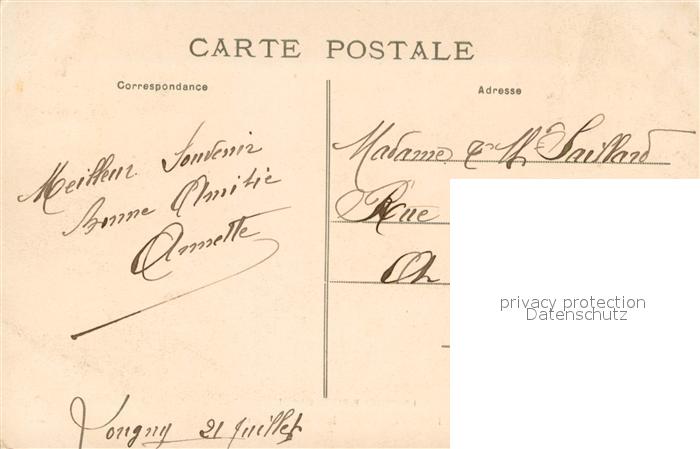 CARTE POSTALE
Correspondance
Meilleur Souvenir
Bonne Amitié
Annette
Yougny 21 Juillet
Adresse
Madame & Mlle Saillard
Rue
Ch
privacy protection
Datenschutz